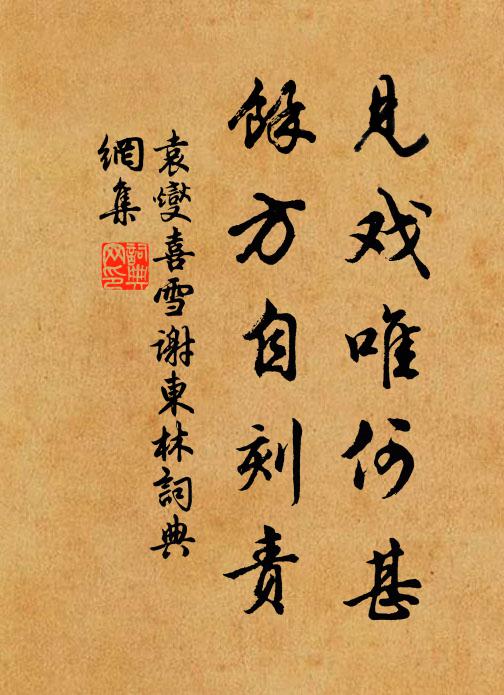 見戏唯何甚
餘方自刻責
袁燮喜雪謝東林詞典
網集
詞典
网印